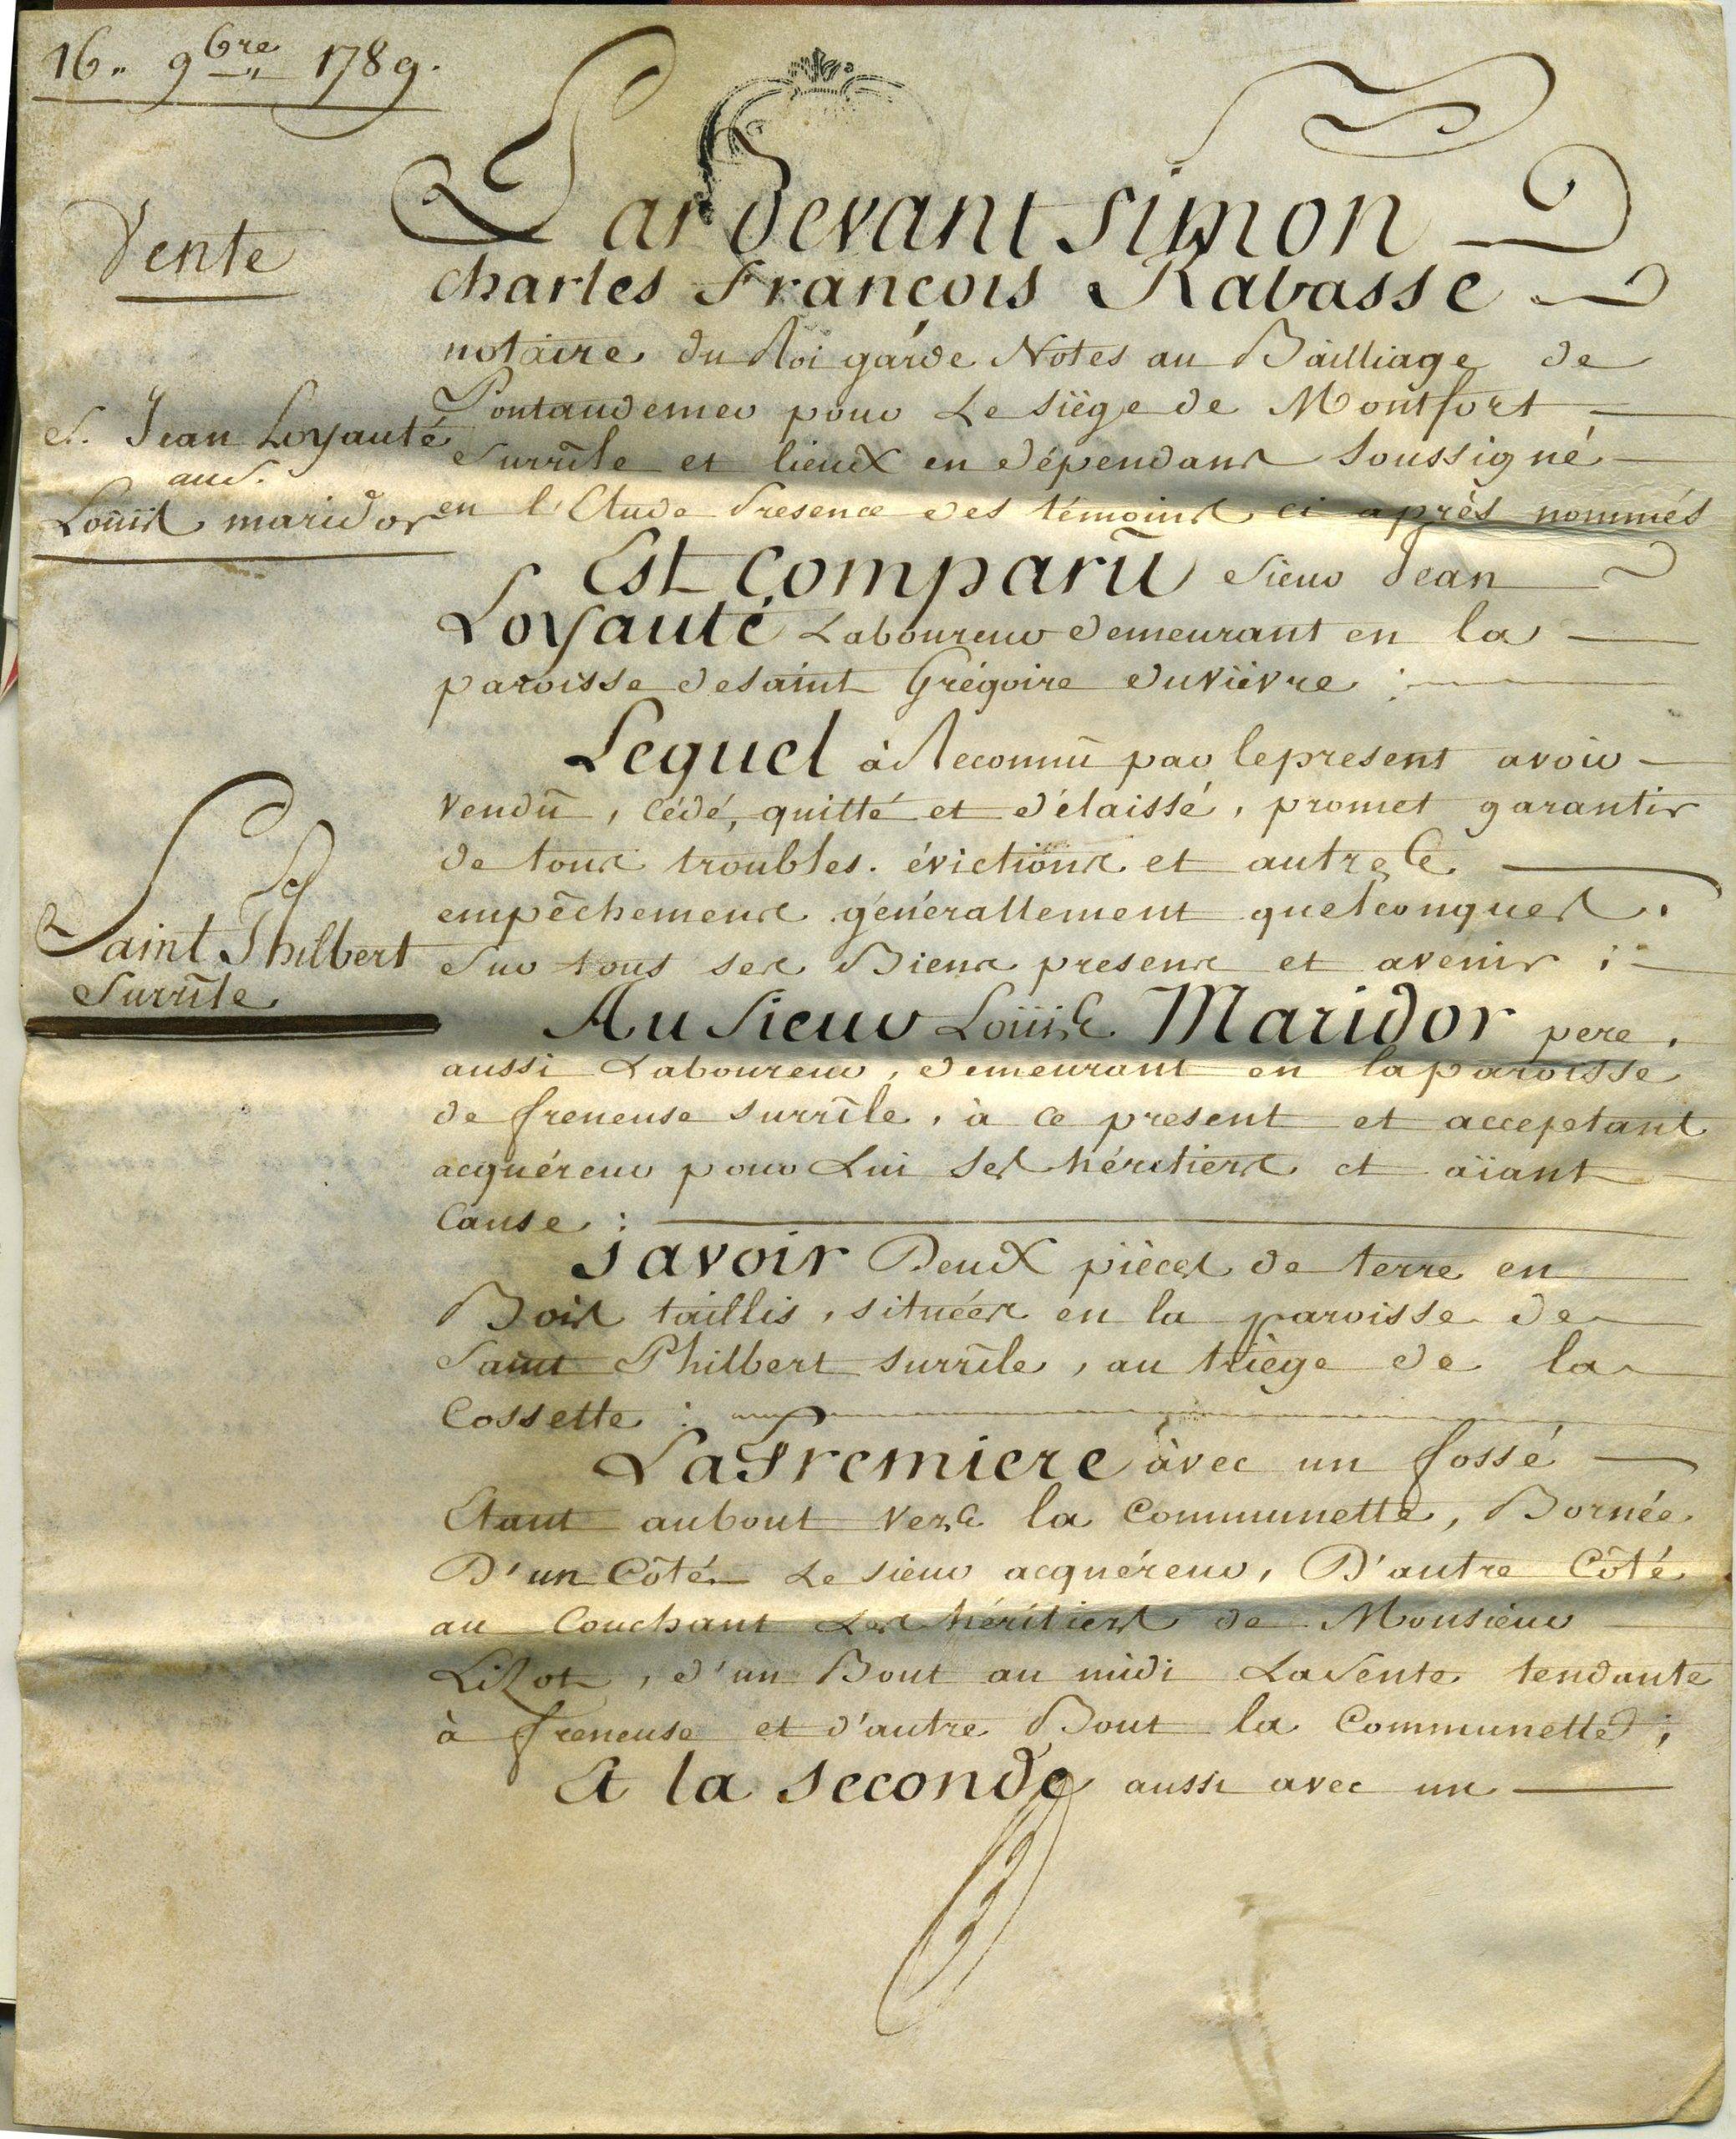 16. 9bre 1789.
Vente
s. Jean Loyauté
aus.
Loüis maridor
Saint Philbert
Surrîle
Pardevant Simon
charles François Rabasse
notaire du Roi garde Notes au Bailliage de
Pontaudemer pour Le siége de Montfort
Surrîle et lieux en dépendans Soussigné
en l'Etude Presence des témoins ci après nommés
Est Comparü Sieur Jean
Loyauté Laboureur demeurant en la
paroisse de saint Grégoire duviévre :
Lequel à Reconnü par lepresent avoir
vendü, cédé, quitté et délaissé, promet garantir
de tous troubles. évictions et autres
empêchemens générallement quelconques.
Sur tous ses Biens presens et avenir ;
Au Sieur Loüis Maridor pere,
aussi Laboureur, demeurant en laparoisse
de freneuse surrîle, à ce present et acceptant
acquéreur pour Lui ses héritiers et aïant
Cause :
Savoir Deux pièces de terre en
Bois taillis, situées en la paroisse de
Saint Philbert surrîle, au triège de la
Cossette :
La Premiere àvec un fossé
Etant aubout vers la Communette, Bornée
D'un Côté Le sieur acquéreur, D'autre Côté
au Couchant Les héritiers de Monsieur
Lizot, d'un Bout au midi La sente tendante
à freneuse et d'autre Bout la Communette ;
Et la seconde aussi avec un